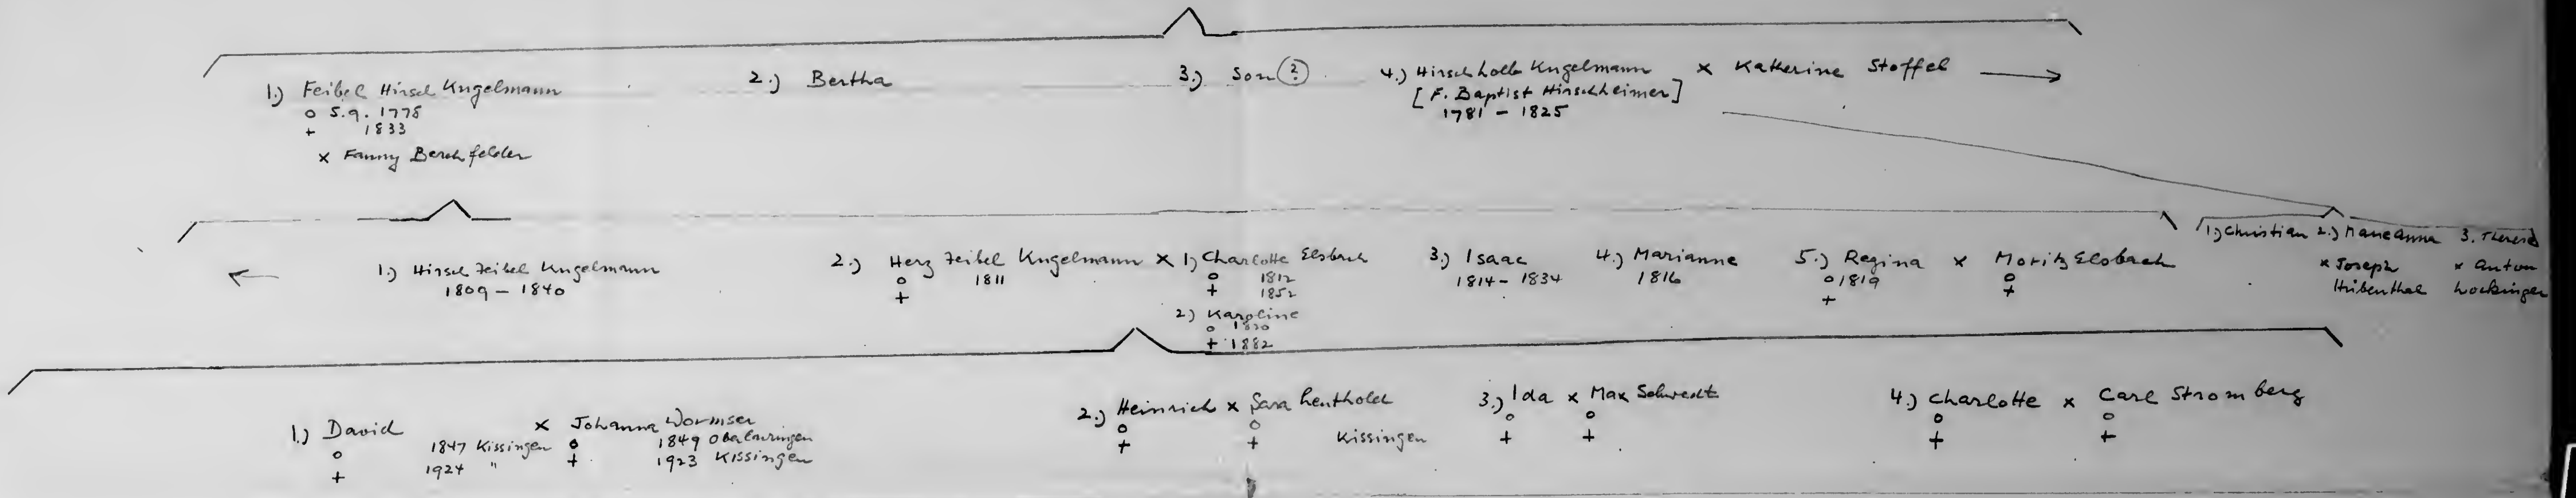 1.) Feibel Hirsch Kugelmann
o 5.9. 1778
+ 1833
x Fanny Berchfelder
2.) Bertha
3.) Son (?)
4.) Hirsch Kugelmann x Katherine Stoffel
[F. Baptist Hirschheimer]
1781 - 1825
1.) Hirsch Feibel Kugelmann
1809 - 1840
2.) Herz Feibel Kugelmann x 1) Charlotte Elsbach
o 1811 o 1812
+ + 1852
2.) Karoline
o
+ 1882
3.) Isaac
1814 - 1834
4.) Marianne
1816
5.) Regina x Moritz Elsbach
o 1819 o
+ +
1.) Christian 2.) Marianna 3. Theresa
x Joseph x Anton
Hubenthal
1.) David x Johanna Wormser
o 1847 Kissingen o 1849 Oberlauringen
+ 1924 " + 1923 Kissingen
2.) Heinrich x Sara
o o
+ + Kissingen
3.) Ida x Max
o o
+ +
4.) Charlotte x Carl Stromberg
o o
+ +